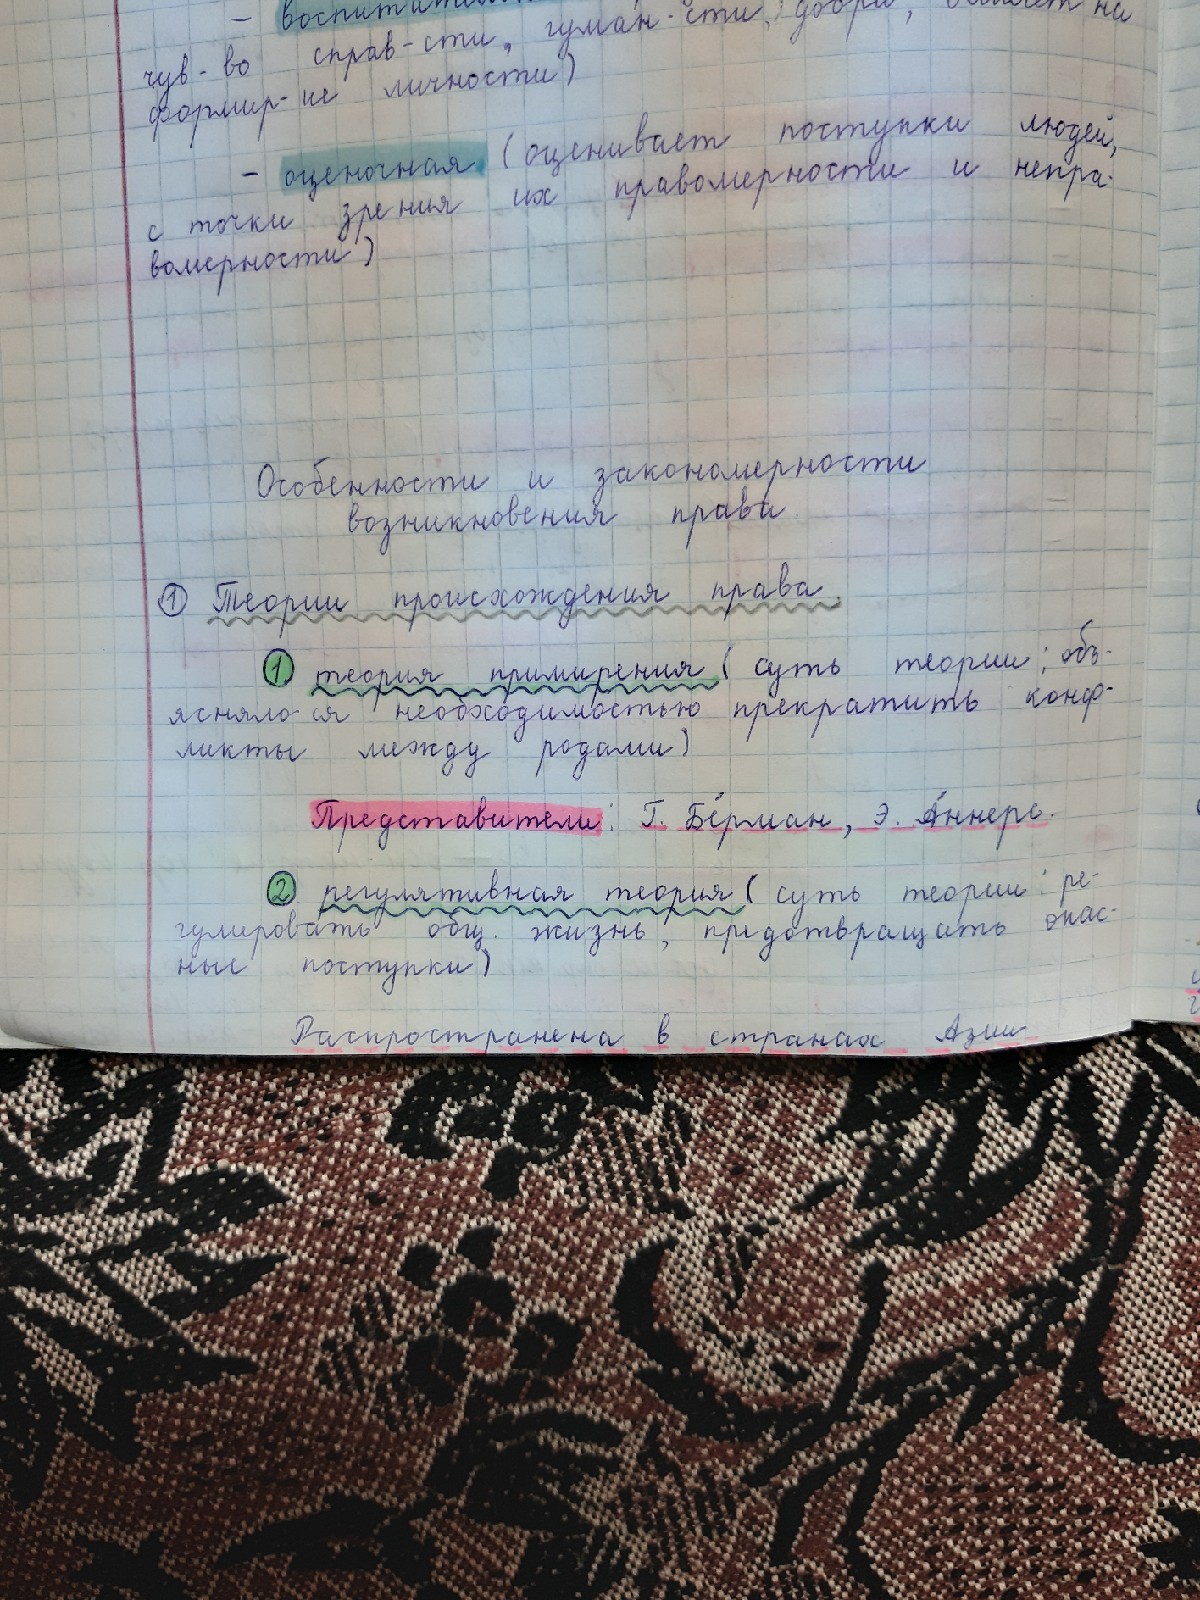 - воспитательн
чув-во справ-сти, гуман-сти, добра, влияет на
формир-ие личности)
- оценочная (оценивает поступки людей,
с точки зрения их правомерности и непра-
вомерности)
Особенности и закономерности
возникновения права
① Теории происхождения права.
① теория примирения (суть теории: объ-
яснялося необходимостью прекратить конф-
ликты между родами)
Представители: Г. Бéрман, Э. Áннерс.
② регулятивная теория (суть теории: ре-
гулировать общ. жизнь, предотвращать опас-
ные поступки)
Распространена в странах Азии